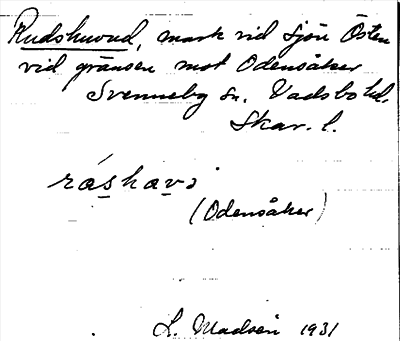 Rudshuvud, mark vid sjön Östen
vid gränsen mot Odensåker
Svenneby sn. Vadsbo hd.
Skar. l.
(Odensåker)
L. Madsén 1931